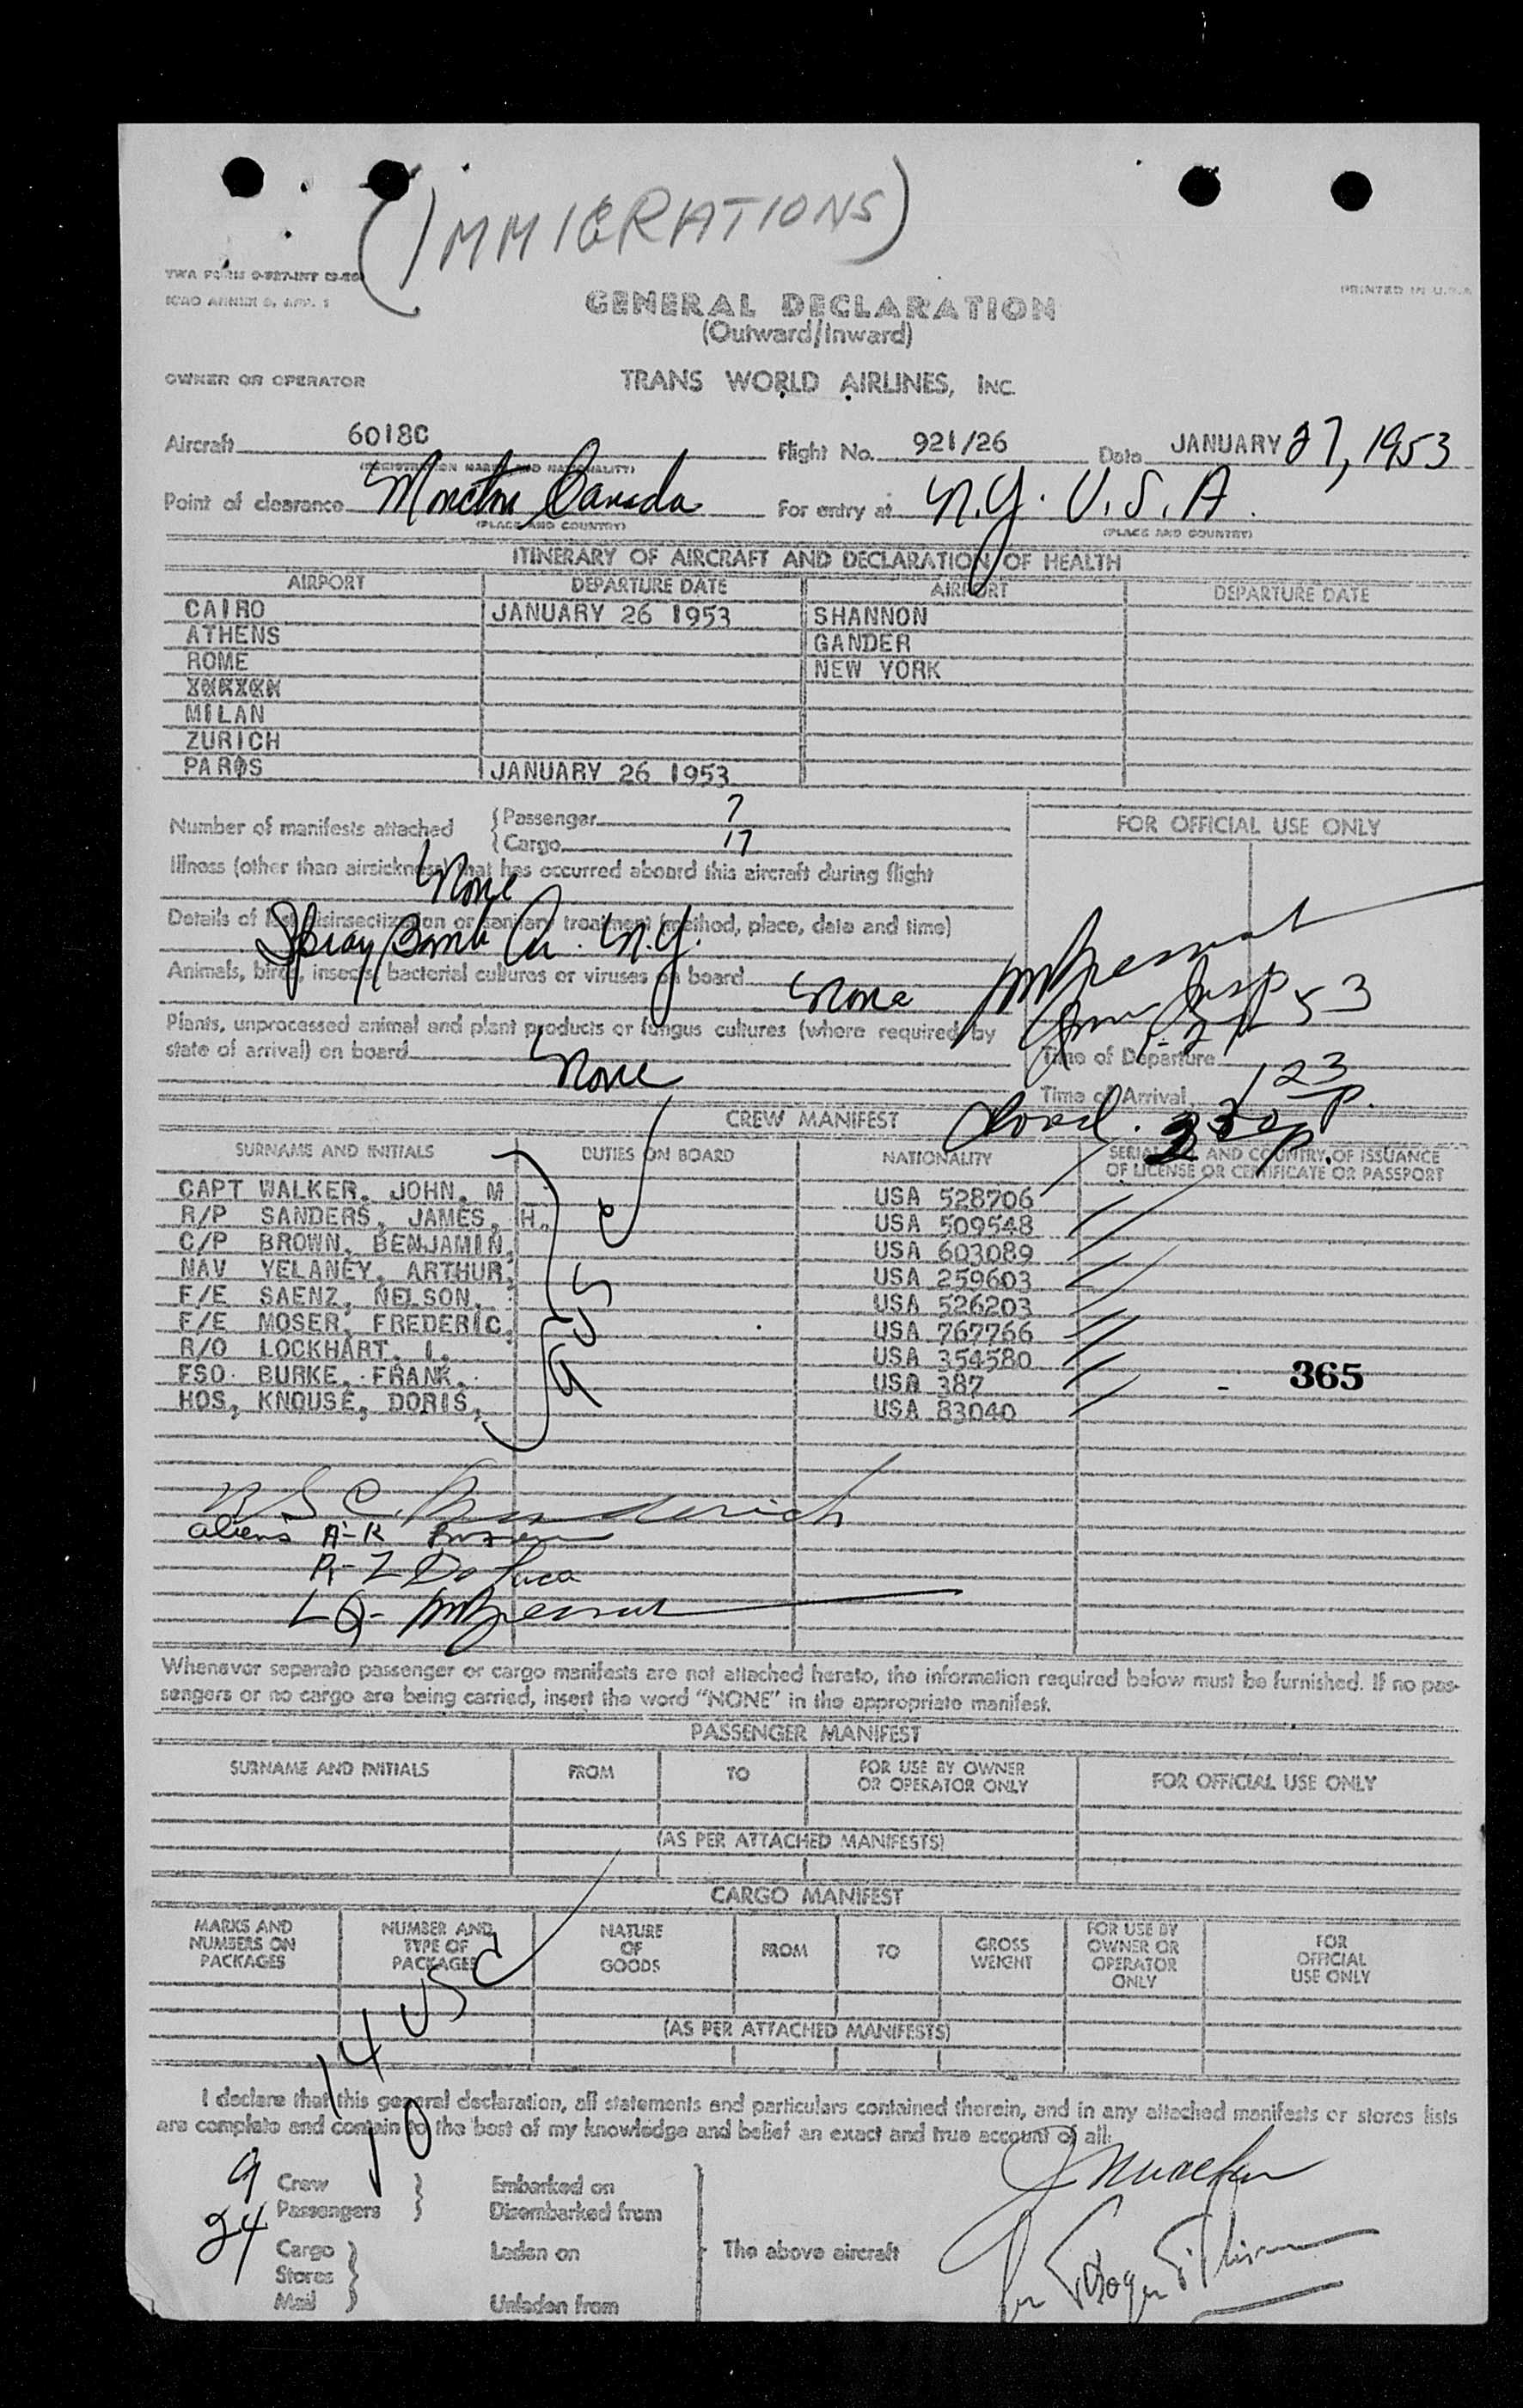 (IMMIGRATIONS)
TWA FORM O-927-INT
ICAO ANNEX 9, APP. 1
PRINTED IN U.S.A.
GENERAL DECLARATION
(Outward/Inward)
OWNER OR OPERATOR TRANS WORLD AIRLINES, INC.
Aircraft 6018C Flight No. 921/26 Date JANUARY 27, 1953
(REGISTRATION MARKS AND NATIONALITY)
Point of clearance Moncton Canada For entry at N.Y. U.S.A.
(PLACE AND COUNTRY) (PLACE AND COUNTRY)
ITINERARY OF AIRCRAFT AND DECLARATION OF HEALTH
AIRPORT DEPARTURE DATE AIRPORT DEPARTURE DATE
CAIRO JANUARY 26 1953 SHANNON
ATHENS GANDER
ROME NEW YORK
MILAN
ZURICH
PARIS JANUARY 26 1953
Number of manifests attached { Passenger 7
{ Cargo 17
FOR OFFICIAL USE ONLY
Illness (other than airsickness) that has occurred aboard this aircraft during flight
None
Details of last disinsectization or sanitary treatment (method, place, date and time)
Spray Bomb Ar. N.Y.
Animals, birds, insects, bacterial cultures or viruses on board None
Plants, unprocessed animal and plant products or fungus cultures (where required by
state of arrival) on board None
Imm Insp
53
Time of Departure
Time of Arrival 1 23 P.
CREW MANIFEST
SURNAME AND INITIALS DUTIES ON BOARD NATIONALITY SERIAL NO. AND COUNTRY OF ISSUANCE
OF LICENSE OR CERTIFICATE OR PASSPORT
CAPT WALKER, JOHN, M USA 528706
R/P SANDERS, JAMES, H. USA 509548
C/P BROWN, BENJAMIN, USA 603089
NAV YELANEY, ARTHUR, USA 259603
F/E SAENZ, NELSON, USA 526203
F/E MOSER, FREDERIC, USA 767766
R/O LOCKHART, I. USA 354580
FSO BURKE, FRANK, USA 387
HOS, KNOUSE, DORIS, USA 83040
9 USC
365
aliens A-K
R-Z DeLuca
L Q-
Whenever separate passenger or cargo manifests are not attached hereto, the information required below must be furnished. If no pas-
sengers or no cargo are being carried, insert the word "NONE" in the appropriate manifest.
PASSENGER MANIFEST
SURNAME AND INITIALS FROM TO FOR USE BY OWNER OR OPERATOR ONLY FOR OFFICIAL USE ONLY
(AS PER ATTACHED MANIFESTS)
CARGO MANIFEST
MARKS AND NUMBERS ON PACKAGES NUMBER AND TYPE OF PACKAGES NATURE OF GOODS FROM TO GROSS WEIGHT FOR USE BY OWNER OR OPERATOR ONLY FOR OFFICIAL USE ONLY
(AS PER ATTACHED MANIFESTS)
14 USC
10
I declare that this general declaration, all statements and particulars contained therein, and in any attached manifests or stores lists
are complete and contain to the best of my knowledge and belief an exact and true account of all:
9 Crew } Embarked on
24 Passengers } Disembarked from
Cargo } Laden on The above aircraft
Stores
Mail } Unladen from